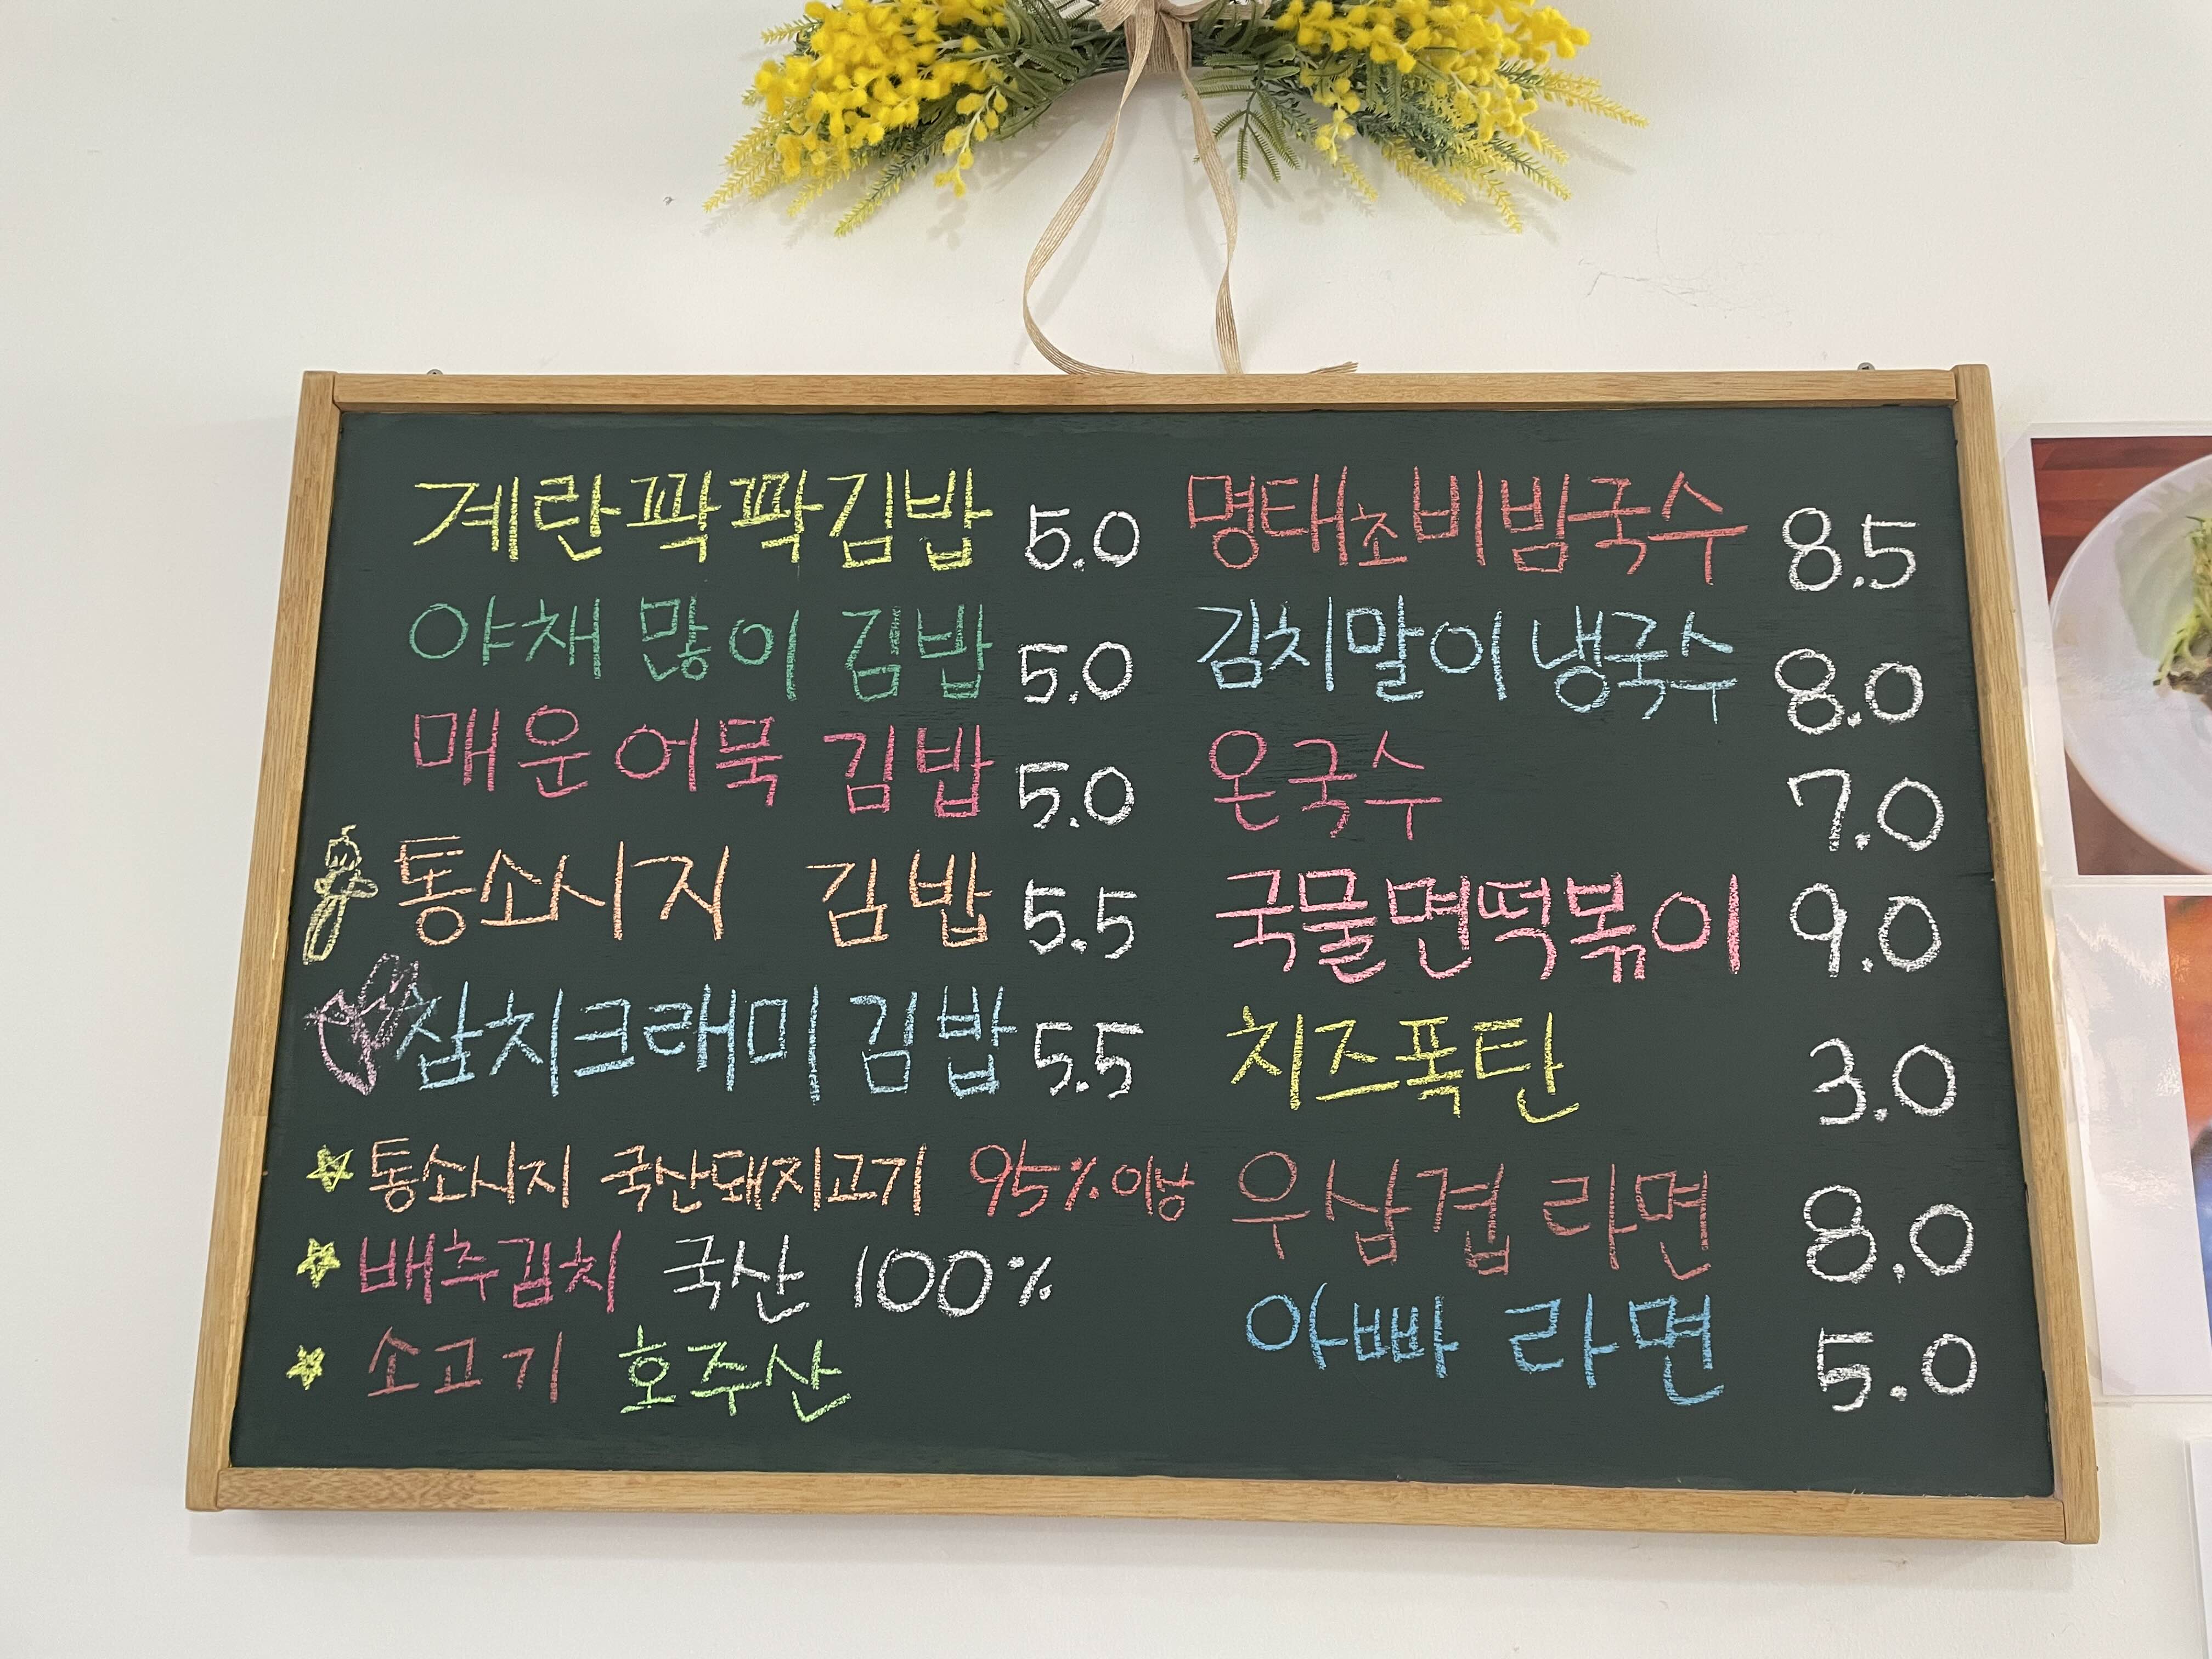 계란꽉꽉김밥 5.0
야채 많이 김밥 5.0
매운어묵 김밥 5.0
통소시지 김밥 5.5
참치크래미김밥 5.5
☆ 통소시지 국산돼지고기 95%이상
☆ 배추김치 국산 100%
☆ 소고기 호주산
명태초비빔국수 8.5
김치말이 냉국수 8.0
온국수 7.0
국물면떡볶이 9.0
치즈폭탄 3.0
우삼겹 라면 8.0
아빠 라면 5.0